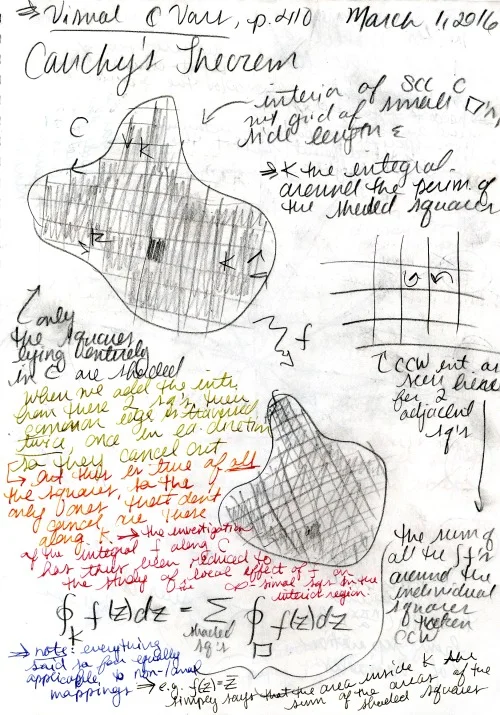 ⇒ Visual C Vars, p.410 March 1, 2016
Cauchy's Theorem
interior of SCC C
w/ grid of small □'s,
side length ε
C
K
⇒ K the integral
around the perim of
the shaded squares
K
K
L
only
the squares
lying entirely
in C are shaded
f
CCW int as
seen here
for 2
adjacent
sq's
when we add the ints
from these 2 sq's their
common edge is traversed
twice, once in ea. direction
so they cancel out
→ but this is true of all
the squares, so the
only ones that don't
cancel are these
along K → the investigation
of the integral f along C
has thus been reduced to
the study of local effect of f on
∞-simal sqs in the
interior region
the sum of
all the ∫f's
around the
individual
squares
taken
CCW
∮ f(z)dz = Σ ∮ f(z)dz
K shaded sq's □
⇒ note: everything
said so far equally
applicable to non-anal
mappings → e.g. f(z)=z̄
simply says that the area inside K the
sum of the areas of the
shaded squares